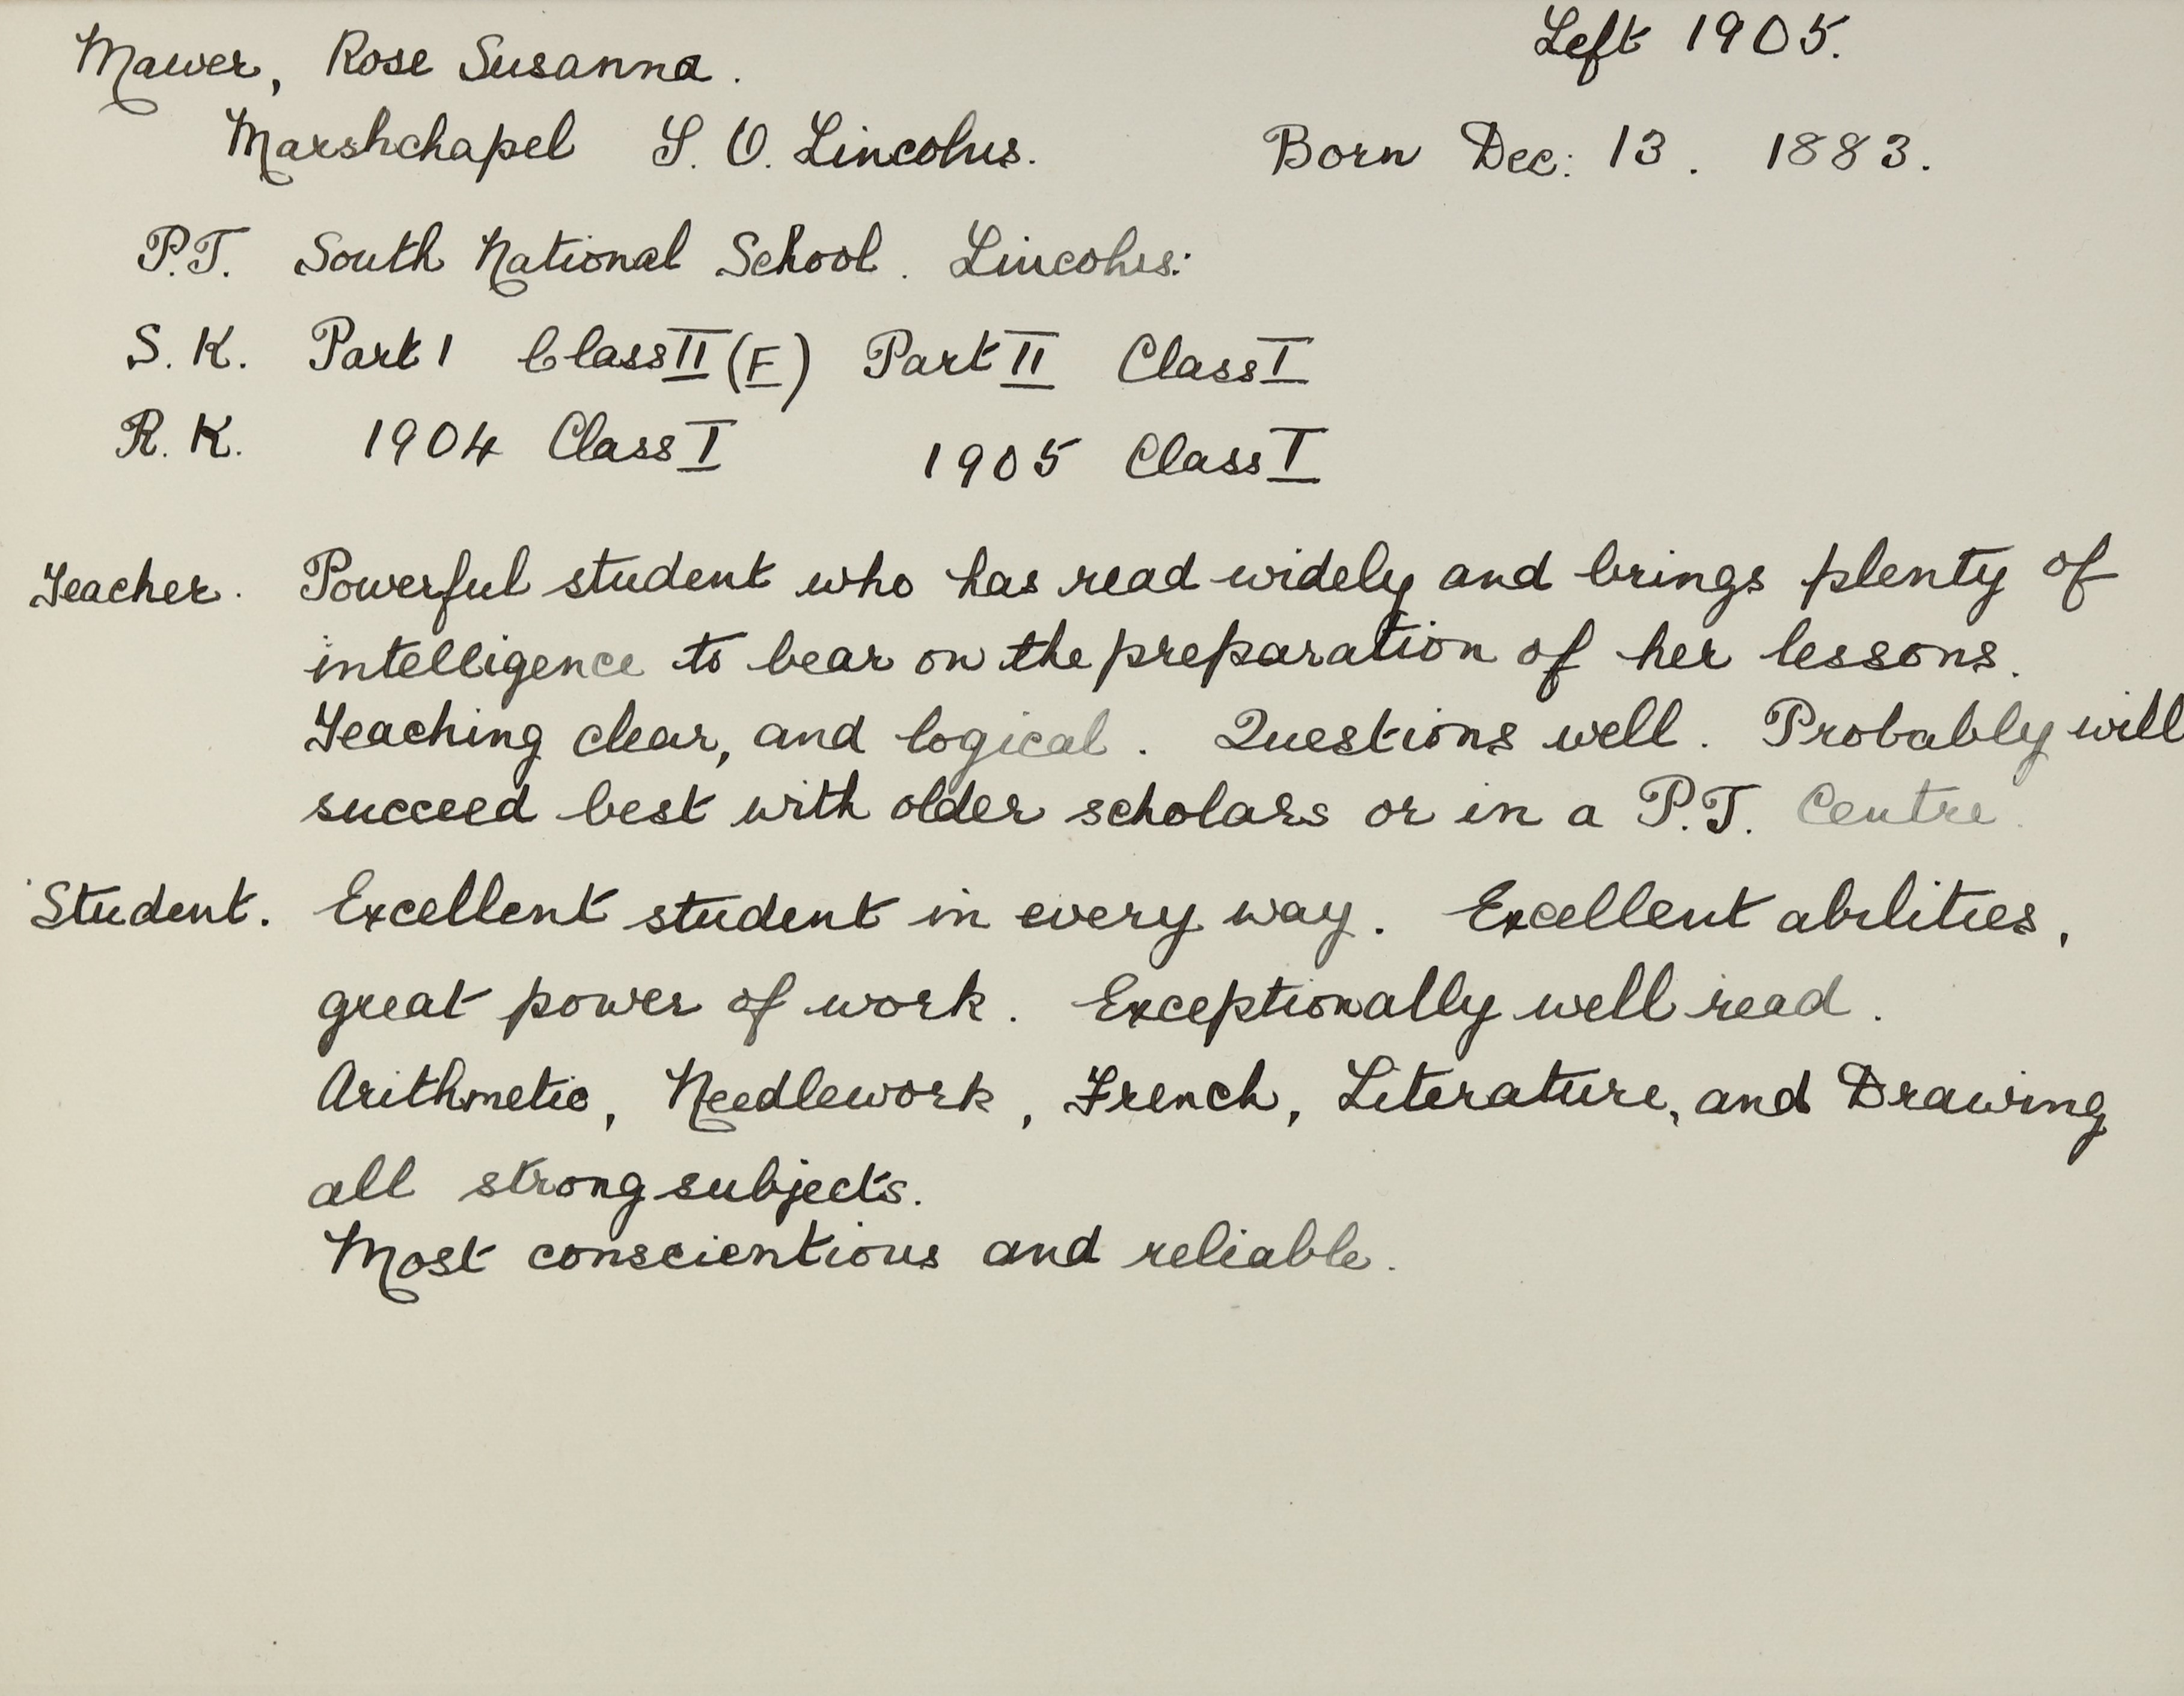 Mawer, Rose Susanna. Left 1905.
Marshchapel S. O. Lincolns. Born Dec: 13. 1883.
P.T. South National School. Lincolns:
S. K. Part 1 Class II (F) Part II Class I
R. K. 1904 Class I 1905 Class I
Teacher. Powerful student who has read widely and brings plenty of
intelligence to bear on the preparation of her lessons.
Teaching clear, and logical. Questions well. Probably will
succeed best with older scholars or in a P.T. Centre.
Student. Excellent student in every way. Excellent abilities,
great power of work. Exceptionally well read.
Arithmetic, Needlework, French, Literature, and Drawing
all strong subjects.
Most conscientious and reliable.